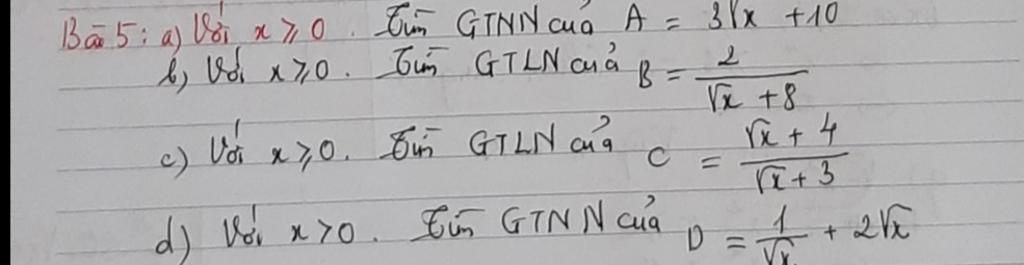 Bài 5: a) Với x ≥ 0. Tìm GTNN của A = 3√x + 10
b) Với x ≥ 0. Tìm GTLN của B = 2/(√x + 8)
c) Với x ≥ 0. Tìm GTLN của C = (√x + 4)/(√x + 3)
d) Với x > 0. Tìm GTNN của D = 1/√x + 2√x